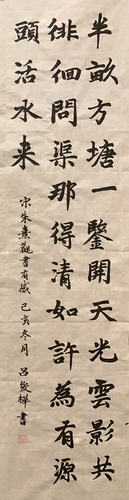 半畝方塘一鑒開天光雲影共
徘徊問渠那得清如許為有源
頭活水来
宋朱熹觀書有感 己亥冬月 呂俊樺書